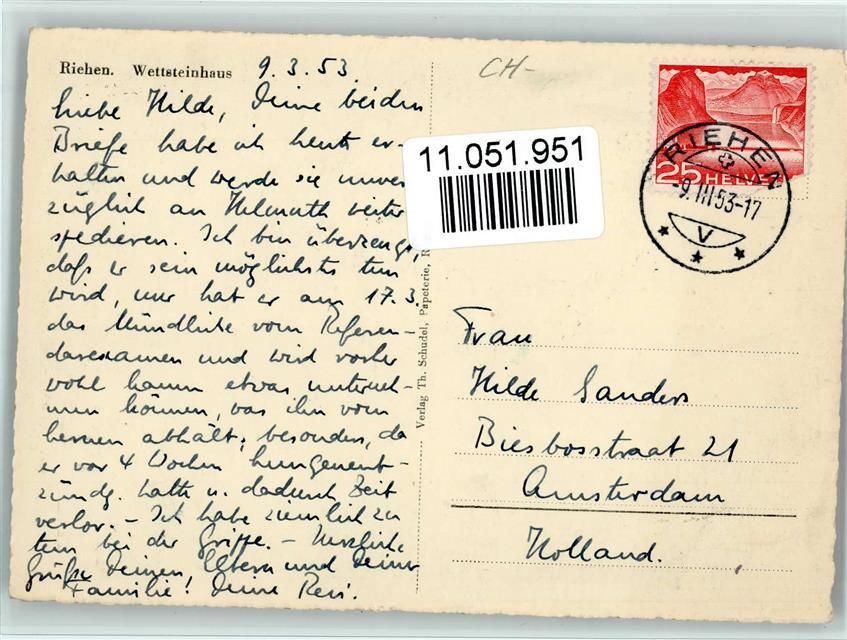 Riehen. Wettsteinhaus 9.3.53.
Liebe Hilde, Deine beiden
Briefe habe ich heute er-
halten und werde sie unver
züglich an Helmuth weiter
spedieren. Ich bin überzeugt,
daß er sein möglichstes tun
wird, nur hat er am 17.3.
das Mündliche vom Referen-
darexamen und wird vorher
wohl kaum etwas unterneh-
men können, was ihn vom
lernen abhält, besonders, da
er vor 4 Wochen Lungenent-
zündg. hatte u. dadurch Zeit
verlor. – Ich habe ziemlich zu
tun bei der Grippe. – Herzliche
Grüße Deinen Eltern und Deiner
Familie! Deine
Verlag Th. Schudel, Papeterie, R
CH-
11.051.951
25 HELVE
RIEHEN
-9.III53-17
V
Frau
Hilde Sanders
Biesbosstraat 21
Amsterdam
Holland.